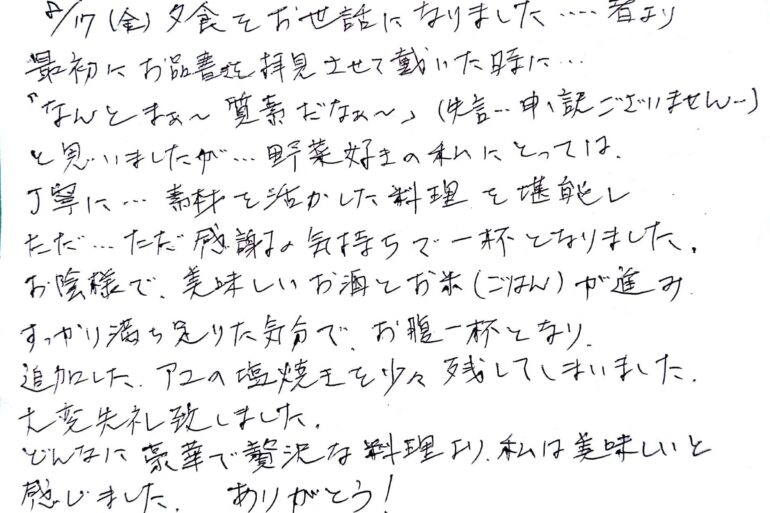 8/17(金)夕食をお世話になりました‥‥者より
最初にお品書を拝見させて戴いた時に…
「なんとまぁ〜質素だなぁ〜」(失言…申し訳ございません…)
と思いましたが…野菜好きの私にとっては、
丁寧に…素材を活かした料理を堪能し
ただ…ただ感謝の気持ちで一杯となりました。
お陰様で、美味しいお酒とお米(ごはん)が進み
すっかり満ち足りた気分で、お腹一杯となり、
追加した、アユの塩焼きを少々残してしまいました。
大変失礼致しました。
どんなに豪華で贅沢な料理より、私は美味しいと
感じました。 ありがとう!